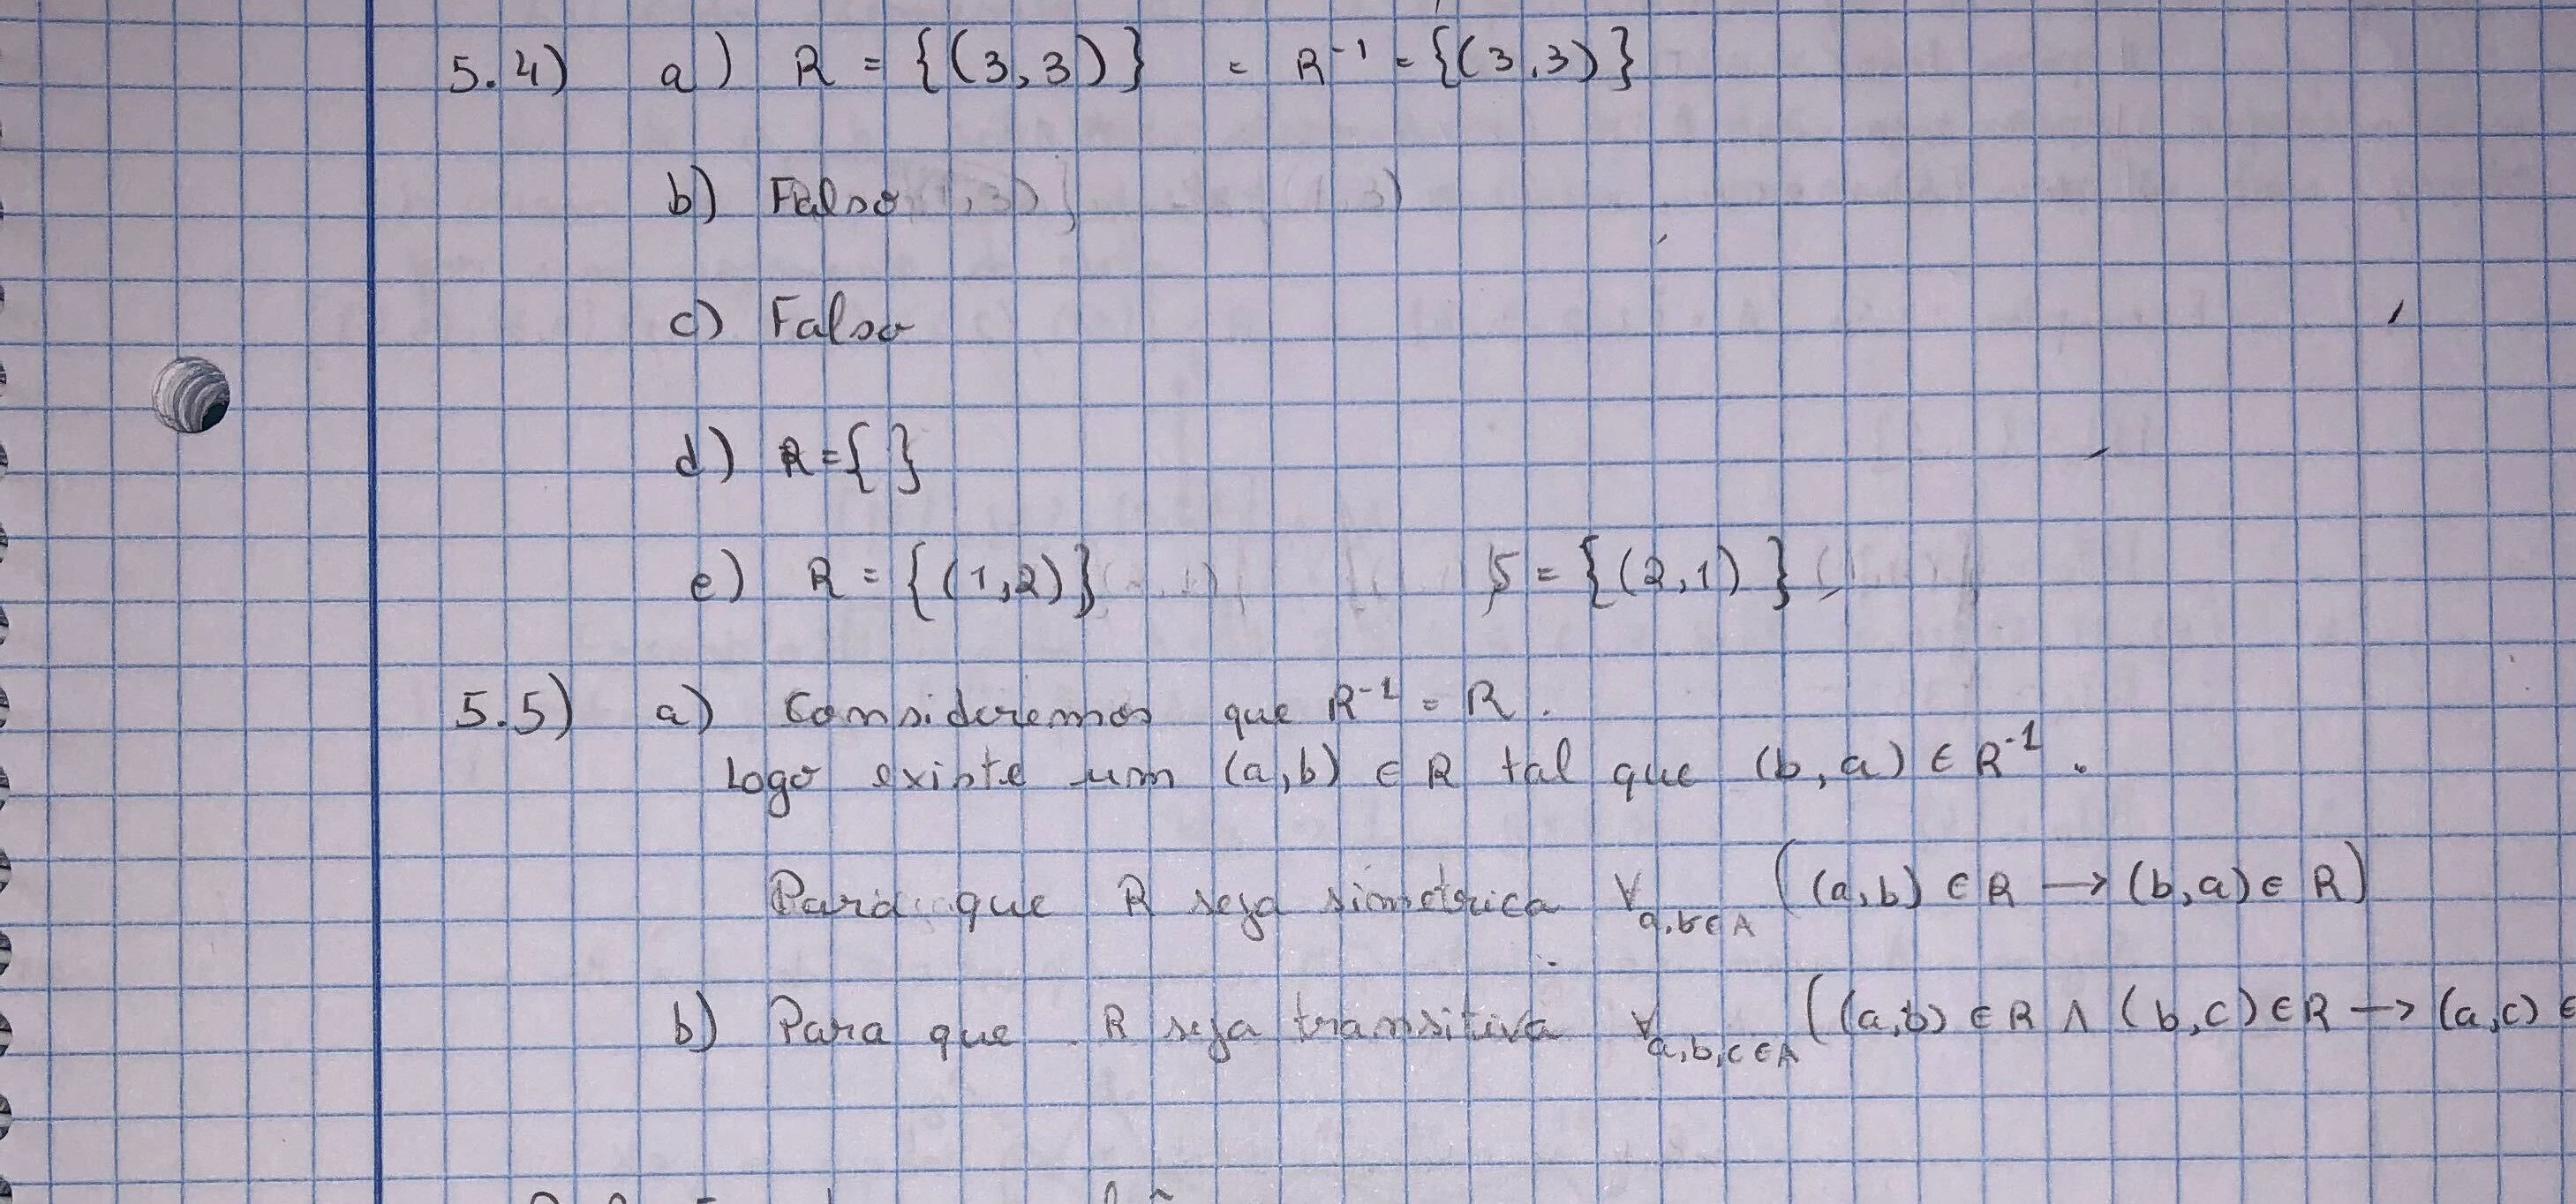 5.4) a) R = {(3,3)} = R⁻¹ = {(3,3)}
b) Falso
c) Falso
d) R = { }
e) R = {(1,2)} S = {(2,1)}
5.5) a) Consideremos que R⁻¹ = R.
Logo existe um (a,b) ∈ R tal que (b,a) ∈ R⁻¹.
Para que R seja simetrica ∀a,b∈A ((a,b) ∈ R → (b,a) ∈ R)
b) Para que R seja transitiva ∀a,b,c∈A ((a,b) ∈ R ∧ (b,c) ∈ R → (a,c) ∈